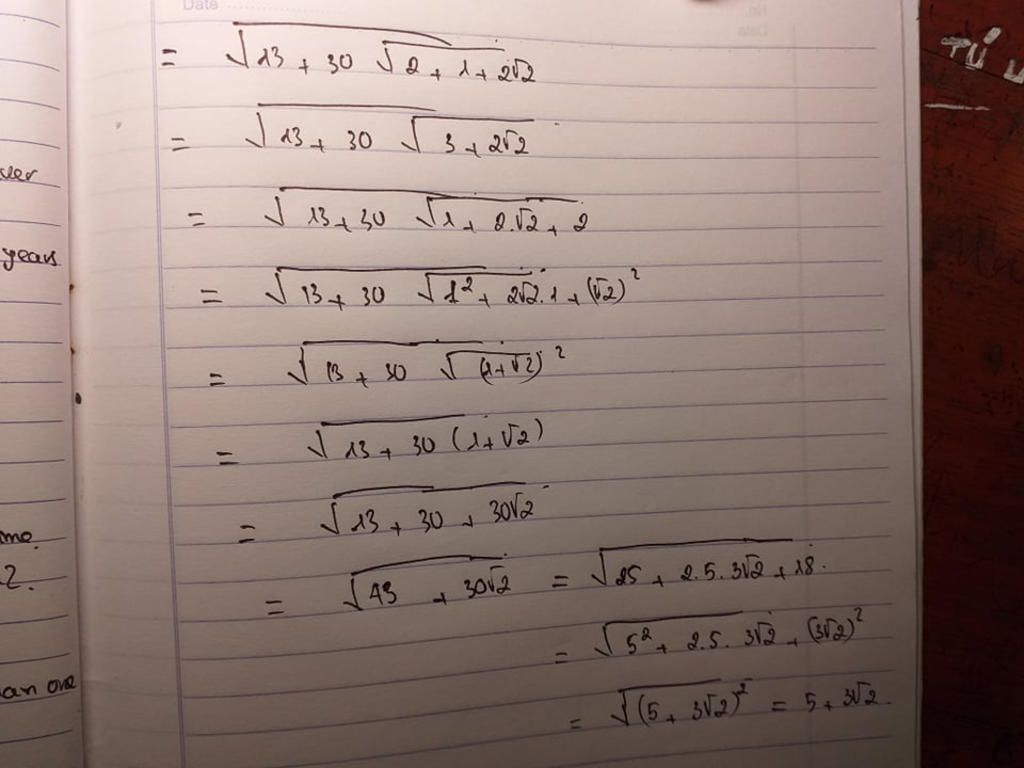 Date
= √13 + 30 √2 + 1 + 2√2
= √13 + 30 √3 + 2√2
= √13 + 30 √1 + 2.√2 + 2
= √13 + 30 √1² + 2√2.1 + (√2)²
= √13 + 30 √(1+√2)²
= √13 + 30 (1+√2)
= √13 + 30 + 30√2
= √43 + 30√2 = √25 + 2.5.3√2 + 18.
= √5² + 2.5.3√2 + (3√2)²
= √(5 + 3√2)² = 5 + 3√2.
years
2.
an ove
TÚ